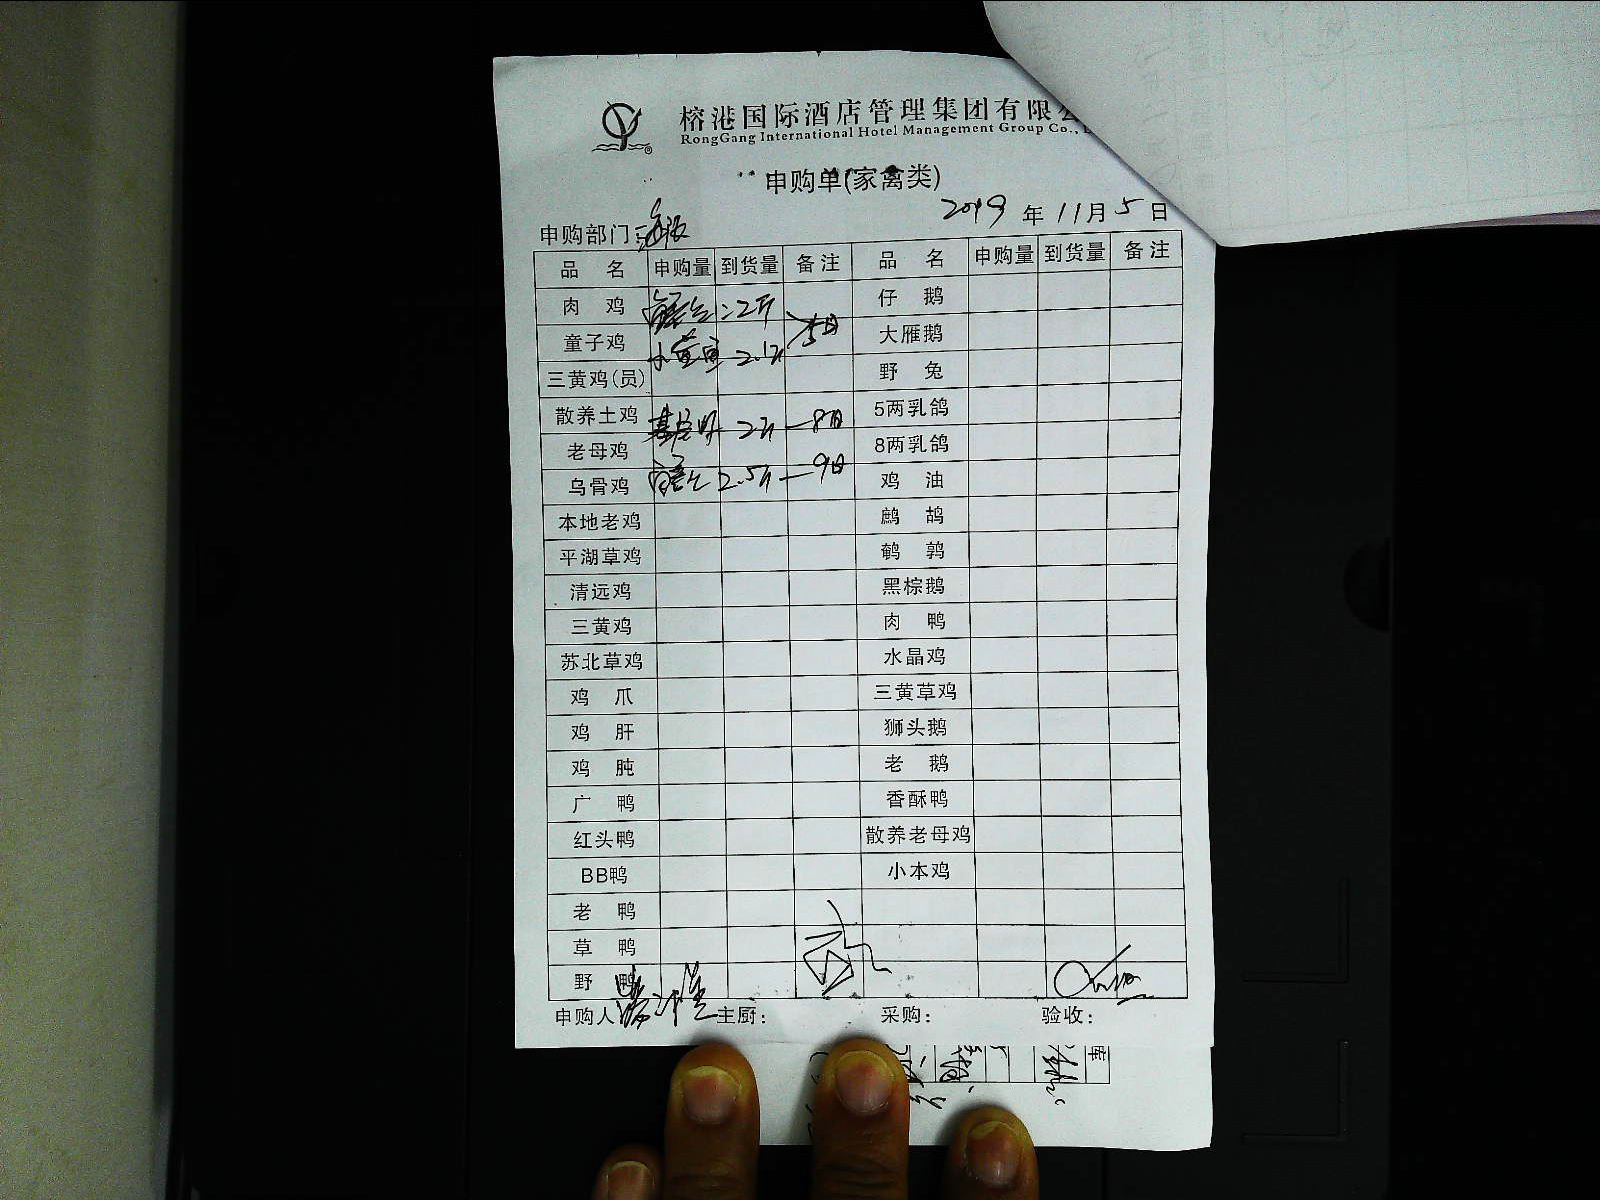 榕港国际酒店管理集团有限
RongGang International Hotel Management Group Co.,
申购单(家禽类)
2019 年 11 月 5 日
申购部门:
品 名 申购量 到货量 备注 品 名 申购量 到货量 备注
肉 鸡 2斤 仔 鹅
童子鸡 小黄鱼 2.1斤 5日 大雁鹅
三黄鸡(员) 野 兔
散养土鸡 2斤 8日 5两乳鸽
老母鸡 8两乳鸽
乌骨鸡 2.5斤 9日 鸡 油
本地老鸡 鹧 鸪
平湖草鸡 鹌 鹑
清远鸡 黑棕鹅
三黄鸡 肉 鸭
苏北草鸡 水晶鸡
鸡 爪 三黄草鸡
鸡 肝 狮头鹅
鸡 肫 老 鹅
广 鸭 香酥鸭
红头鸭 散养老母鸡
BB鸭 小本鸡
老 鸭
草 鸭
野 鸭
申购人 主厨: 采购: 验收:
库